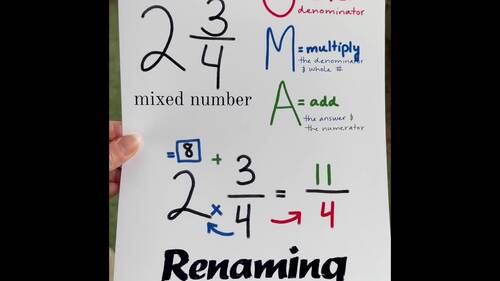 2 3/4
mixed number
denominator
M = multiply
the denominator
& whole #
A = add
the answer &
the numerator
= 8 +
2 x 3/4 = 11/4
Renaming